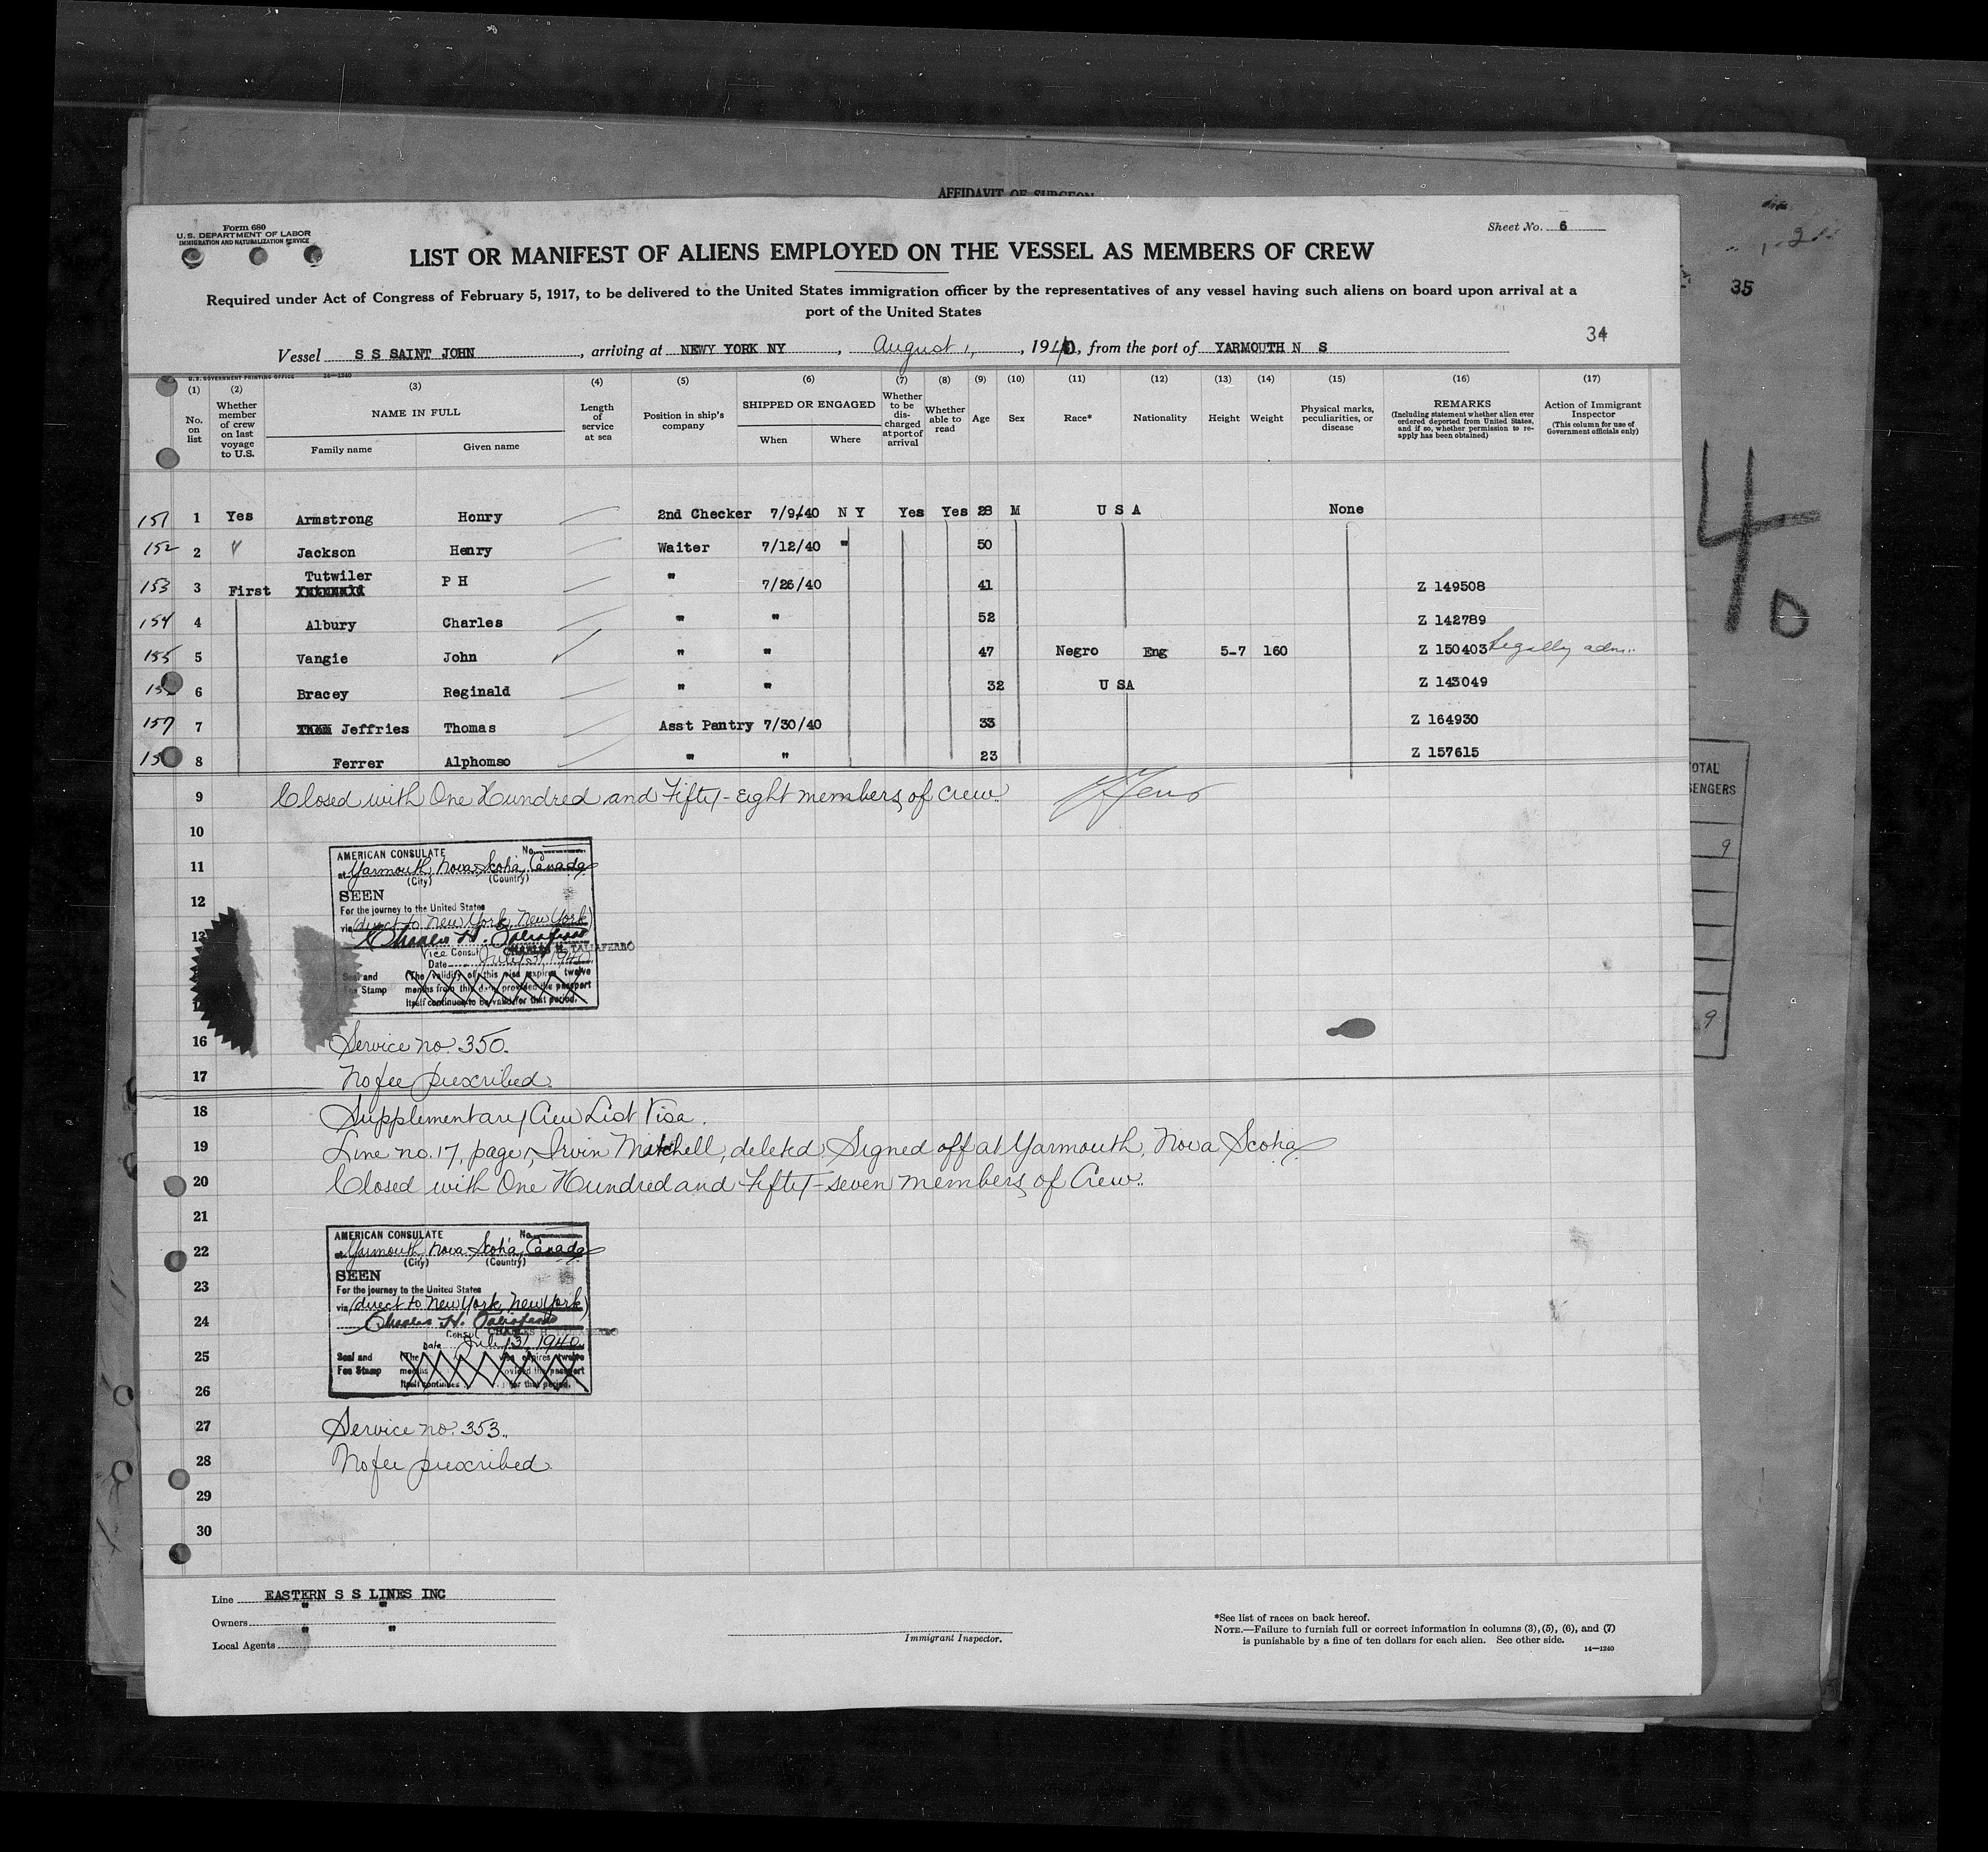 AFFIDAVIT OF SURGEON
Form 680
U. S. DEPARTMENT OF LABOR
IMMIGRATION AND NATURALIZATION SERVICE
Sheet No. 6
LIST OR MANIFEST OF ALIENS EMPLOYED ON THE VESSEL AS MEMBERS OF CREW
Required under Act of Congress of February 5, 1917, to be delivered to the United States immigration officer by the representatives of any vessel having such aliens on board upon arrival at a
port of the United States
35
34
Vessel S S SAINT JOHN, arriving at NEWY YORK NY, August 1, 1940, from the port of YARMOUTH N S
U. S. GOVERNMENT PRINTING OFFICE 14—1240
(1) (2) (3) (4) (5) (6) (7) (8) (9) (10) (11) (12) (13) (14) (15) (16) (17)
No. on list
Whether member of crew on last voyage to U.S.
NAME IN FULL
Family name
Given name
Length of service at sea
Position in ship's company
SHIPPED OR ENGAGED
When
Where
Whether to be discharged at port of arrival
Whether able to read
Age
Sex
Race*
Nationality
Height
Weight
Physical marks, peculiarities, or disease
REMARKS
(Including statement whether alien ever ordered deported from United States, and if so, whether permission to reapply has been obtained)
Action of Immigrant Inspector
(This column for use of Government officials only)
151 1 Yes Armstrong Honry 2nd Checker 7/9/40 N Y Yes Yes 28 M U S A None
152 2 Jackson Henry Waiter 7/12/40 " 50
153 3 First Tutwiler P H " 7/26/40 41 Z 149508
154 4 Albury Charles " " 52 Z 142789
155 5 Vangie John " " 47 Negro Eng 5-7 160 Z 150403 Legally adm..
6 Bracey Reginald " " 32 U SA Z 143049
157 7 Jeffries Thomas Asst Pantry 7/30/40 33 Z 164930
8 Ferrer Alphomso " " 23 Z 157615
9 Closed with One Hundred and Fifty-Eight members of crew.
10
11
12
13
AMERICAN CONSULATE No.
at Yarmouth, Nova Scotia, Canada
(City) (Country)
SEEN
For the journey to the United States
via (direct to New York, New York)
Charles H. Taliaferro
Vice Consul CHARLES H. TALIAFERRO
Date July 31, 1940.
Seal and Fee Stamp
(The validity of this visa expires twelve
months from this date provided the passport
itself continues to be valid for that period.
16 Service no. 350.
17 No fee prescribed.
18 Supplementary Crew List Visa.
19 Line no. 17, page 1, Irvin Mitchell, deleted, Signed off at Yarmouth, Nova Scotia
20 Closed with One Hundred and Fifty-seven members of Crew..
21
22
23
24
25
26
AMERICAN CONSULATE No.
at Yarmouth, Nova Scotia, Canada
(City) (Country)
SEEN
For the journey to the United States
via (direct to New York, New York)
Charles H. Taliaferro
Consul
Date July 31, 1940.
Seal and
Fee Stamp
27 Service no. 353..
28 No fee prescribed.
29
30
40
TOTAL
9
9
Line EASTERN S S LINES INC
Owners " "
Local Agents " "
Immigrant Inspector.
*See list of races on back hereof.
NOTE.—Failure to furnish full or correct information in columns (3), (5), (6), and (7)
is punishable by a fine of ten dollars for each alien. See other side.
14—1240